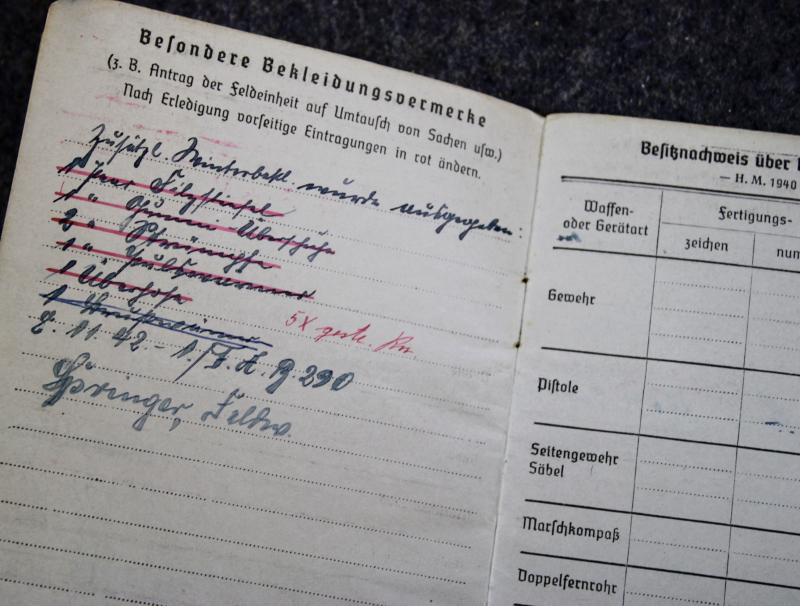 Besondere Bekleidungsvermerke
(z. B. Antrag der Feldeinheit auf Umtausch von Sachen usw.)
Nach Erledigung vorseitige Eintragungen in rot ändern.
Zusätzl. Winterbekl. wurde ausgegeben:
1 Paar Filzstiefel
1 " Gummi-Überschuhe
2 " Strümpfe
1 " Pulswärmer
1 Überhose
1
5X gestr.
11.42.- 1./ A. R 290
Springer, Feldw.
Besitznachweis über
— H. M. 1940
Waffen- oder Gerätart
Fertigungs-
zeichen
num
Gewehr
Pistole
Seitengewehr
Säbel
Marschkompaß
Doppelfernrohr